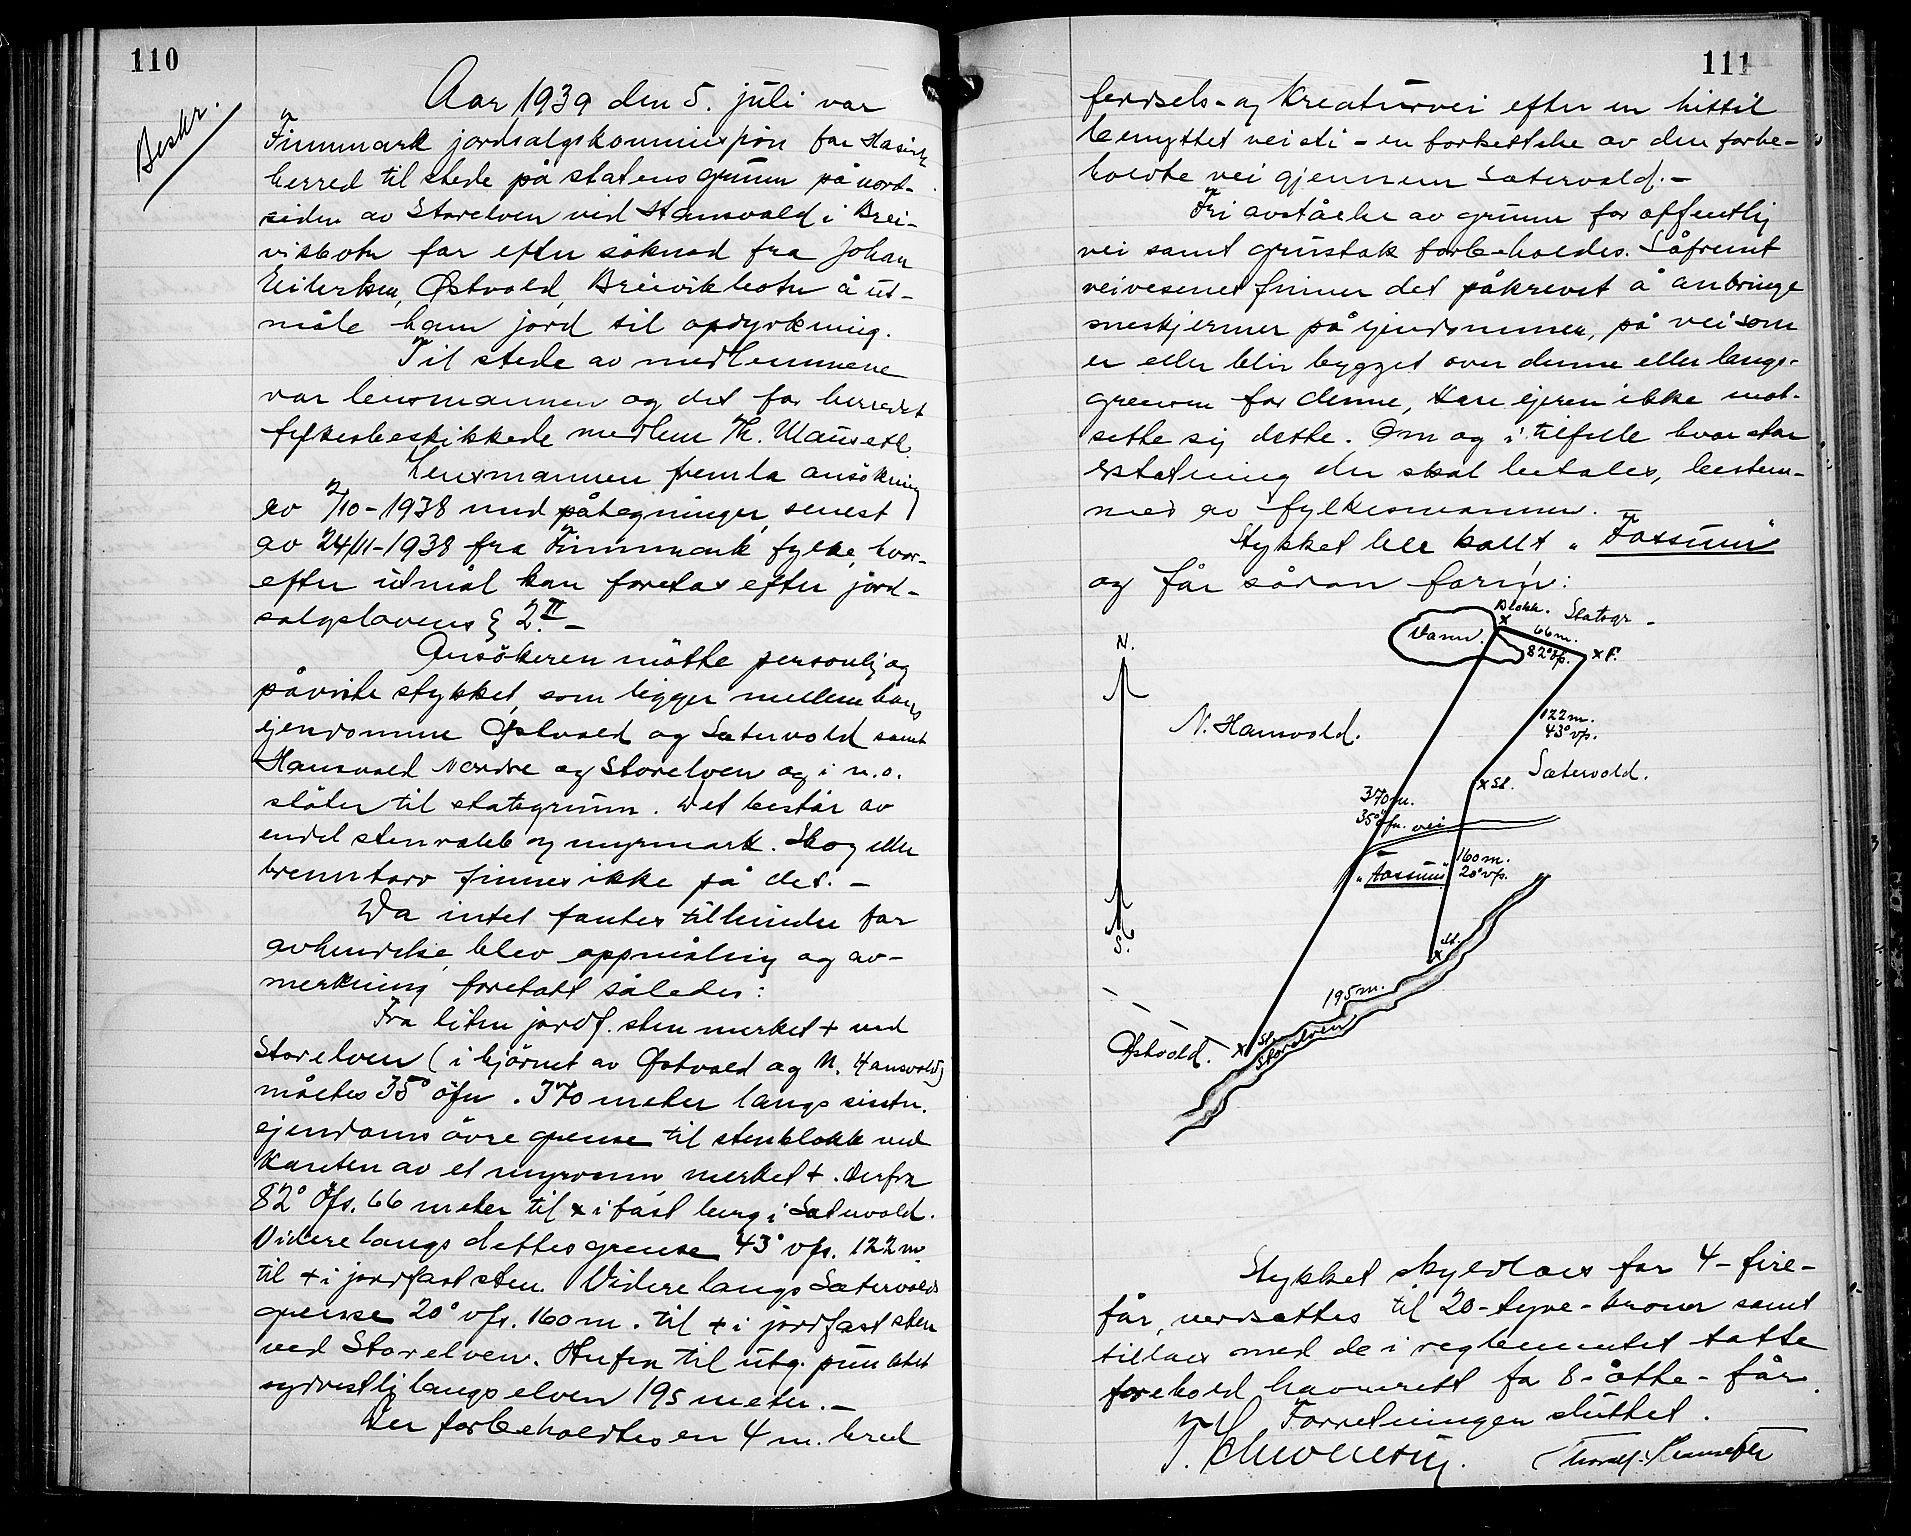 110
Beskr.
Aar 1939 den 5. juli var
Finnmark jordsalgskommisjon for Hasvik
herred til stede på statens grunn på nord-
siden av Storelven ved Hansvold i Brei-
vikbotn for efter søknad fra Johan
Eilertsen, Østvold, Breivikbotn å ut-
måle ham jord til opdyrkning.
Til stede av medlemmene
var lensmannen og det for herredet
fylkesbeskikkede medlem Th.
Lensmannen fremla ansökning
av 2/10-1938 med påtegninger, senest
av 24/11-1938 fra Finnmark fylke, hvor-
efter utmål kan foretas efter jord-
salgslovens § 2 II -
Ansökeren mötte personlig og
påviste stykket, som ligger mellem hans
ejendomme Østvold og Sætervold samt
Hansvold Nordre og Storelven og i n.o.
stöter til statsgrunn. Det består av
endel stenrabb og myrmark. Skog eller
brenntorv finnes ikke på det. -
Da intet fantes til hinder for
avhendelse blev oppmåling og av-
merkning foretatt således:
Fra liten jordf. sten merket + ved
Storelven (i hjörnet av Østvold og N. Hansvold)
måltes 35° öfn. 370 meter langs sistn.
ejendoms övre grense til stenblokk ved
kanten av et myrvann merket +. Derfra
82° öfs. 66 meter til x i fast berg i Sætervold.
Videre langs dettes grense 43° vfs. 122 m
til + i jordfast sten. Videre langs Sætervolds
grense 20° vfs. 160 m. til + i jordfast sten
ved Storelven. Herfra til utg. punktet
sydvestlig langs elven 195 meter. -
Der forbeholdtes en 4 m. bred
111
ferdsels- og kreaturvei efter en hittil
benyttet vei sti - en fortsettelse av den forbe-
holdte vei gjennem Sætervold. -
Fri avståelse av grunn for offentlig
vei samt grustak forbeholdes. Såfremt
veivesenet finner det påkrevet å anbringe
sneskjermer på ejendommen, på vei som
er eller blir bygget over denne eller langs
grensen for denne, kan ejeren ikke mot-
sette sig dette. Om og i tilfelle hvor stor
erstatning der skal betales, bestem-
mes av fylkesmannen. -
Stykket ble kallt "Fossum"
og får sådan form:
Blokk. Statsgr.
Vann. x 66 m.
82° öfs. x F.
N.
122 m.
43° vfs.
N. Hansvold.
x St. Sætervold.
370 m.
35° öfn. vei
160 m.
"Fossum" 20° vfs.
S.
x St.
195 m.
Østvold. x St. Storelven
Stykket skyldlaes for 4-fire-
får, verdsattes til 20-tyve-kroner samt
tillaes med de i reglementet tatte
forehold havnerett for 8-åtte-får.
Forretningen sluttet.